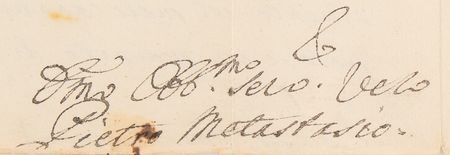 &
Dmo Obb.mo servo. Vero
Pietro Metastasio.